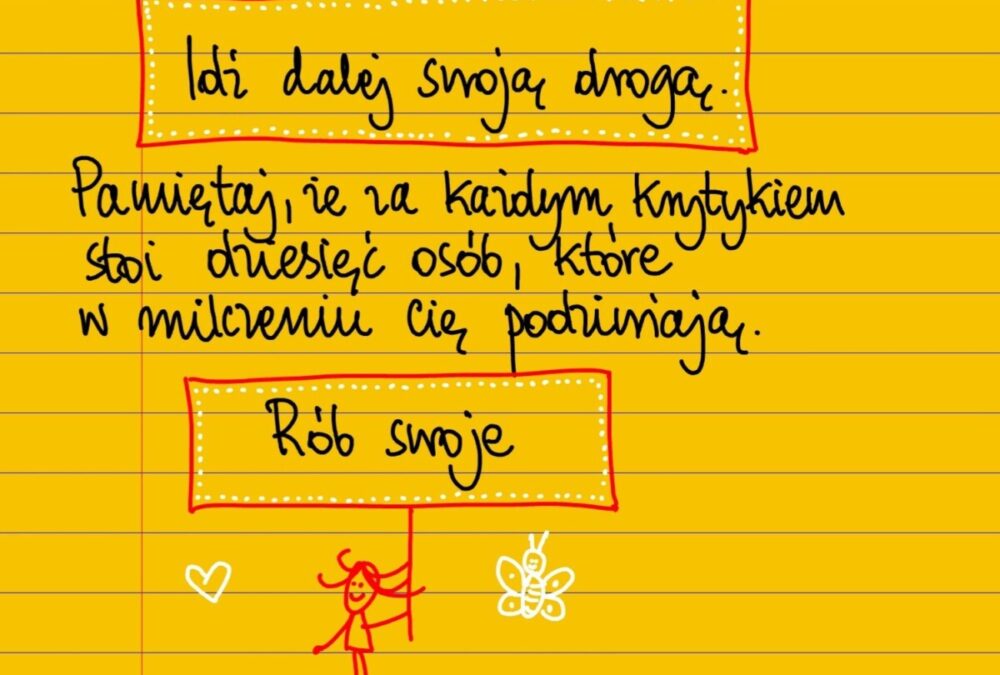 Idź dalej swoją drogą.
Pamiętaj, że za każdym krytykiem
stoi dziesięć osób, które
w milczeniu cię podziwiają.
Rób swoje